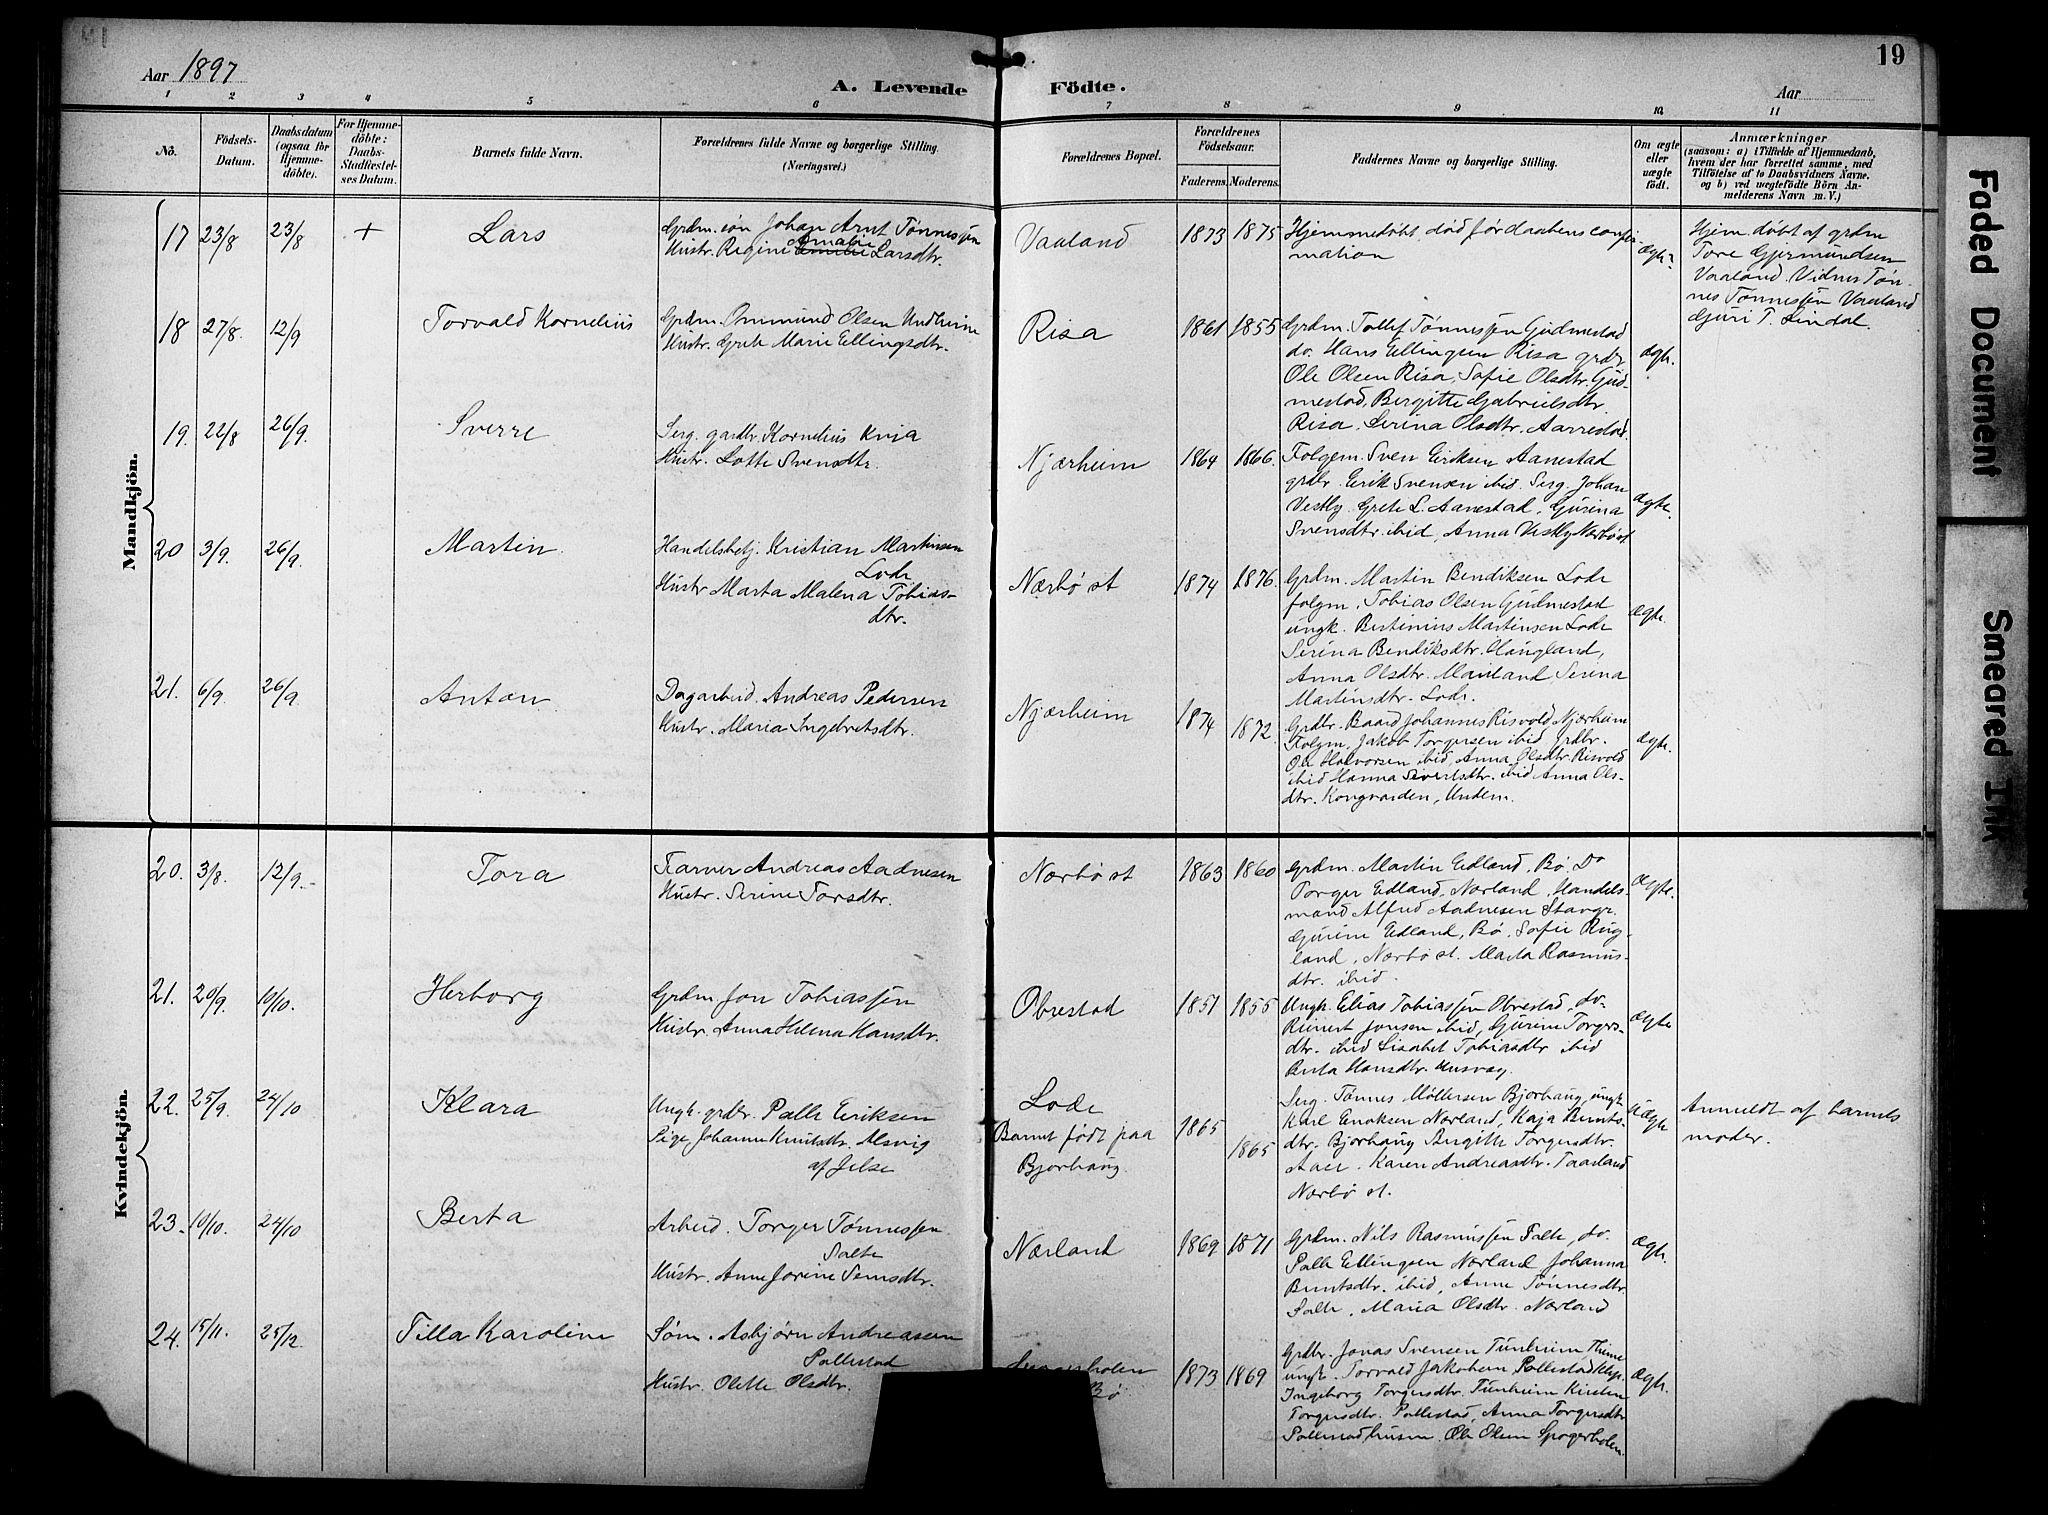 19
Aar 1897
A. Levende Födte.
Aar
1 2 3 4 5 6 7 8 9 10 11
Nö.
Födsels-Datum.
Daabsdatum (ogsaa for Hjemmedöbte).
For Hjemmedöbte: Daabs-Stadfæstelses Datum.
Barnets fulde Navn.
Forældrenes fulde Navne og borgerlige Stilling. (Næringsvei.)
Forældrenes Bopæl.
Forældrenes Födselsaar.
Faderens. Moderens.
Faddernes Navne og borgerlige Stilling.
Om ægte eller uægte födt.
Anmærkninger
(saasom: a) i Tilfælde af Hjemmedaab, hvem der har forrettet samme, med Tilföielse af to Daabsvidners Navne. og b) ved uægtefödte Börn Anmelderens Navn m. V.)
Mandkjön.
17 23/8 23/8 + Lars
Grdm. sön Johan Arnt Tønnessen
Hustr. Regine Amalie Larsdtr.
Vaaland 1873 1875
Hjemmedøbt, død før daabens confir-
mation
Hjem. døbt af grdm
Tore Gjermundsen
Vaaland. Vidner Tøn-
nes Tønnessen Vaaland
Guri T. Lindal.
18 27/8. 12/9 Torvald Kornelius
Grdm. Ommund Olsen Undheim
Hustr. Grete Marie Ellingsdtr.
Risa 1861 1855
Grdm. Tollef Tønnessen Gudmestad
do. Hans Ellingsen Risa grdbr
Ole Olsen Risa, Sofie Olsdtr. Gud-
mestad, Bergitte Gabrielsdtr.
Risa, Serina Olsdtr. Aarrestad.
ægte.
19. 22/8 26/9. Sverre
Serg. gardbr. Kornelius Kvia
Hustr. Lotte Svensdtr.
Njærheim 1864 1866.
Folgem. Sven Eriksen Aanestad
grdbr. Eirik Svensen ibid. Serg. Johan
Vestly. Grete L. Aanestad, Gurina
Svensdtr. ibid, Anna Vestly Nærbø st
ægte.
20 3/9. 26/9. Martin.
Handelsbetj. Kristian Martinsen
Lode
Hustr Marta Malena Tobias-
dtr.
Nærbø st 1874 1876.
Grdm. Martin Bendiksen Lode
folgm. Tobias Olsen Gudmestad
ungk. Bertinius Martinsen Lode
Serina Bendiksdtr. Haugland,
Anna Olsdtr. Mauland, Serina
Martinsdtr. Lode.
ægte.
21. 6/9. 26/9. Anton.
Dagarbeid. Andreas Pedersen
Hustr. Maria Ingebretsdtr.
Njærheim 1874 1872.
Grdbr. Baard Johannes Risvold, Njærheim
Folgm. Jakob Torgersen ibid, grdbr.
Ole Halvorsen ibid, Anna Olsdtr. Risvold
ibid Hanna Sivertsdtr. ibid Anna Ols-
dtr. Kongvarden, Undem.
ægte.
Kvindekjön.
20. 3/8. 12/9. Tora
Garver Andreas Aadnesen
Hustr. Serine Torsdtr.
Nærbø st 1863 1860
Grdm. Martin Edland, Bø. Do
Torger Edland, Nærland. Handels-
mand Alfred Aadnesen Stavgr.
Gurine Edland, Bø. Sofie Rug-
land, Nærbø st. Marta Rasmus-
dtr. ibid.
ægte.
21. 20/9 10/10. Herborg
Grdm Jon Tobiassen
Hustr. Anna Helena Hansdtr.
Obrestad 1851 1855
Ungk. Elias Tobiassen Obrestad, do.
Reinert Jonsen ibid, Gurine Torgers-
dtr. ibid Lisabet Tobiasdtr ibid
Berta Hansdtr.
ægte
22. 25/9 24/10 Klara
Ungk. grdbr. Palle Eriksen
Pige Johanne Knutsdtr. Alsvig
af Jelse
Lode
Barnet født paa
Bjorhaug.
1865 1865
Serg. Tønnes Møllersen Bjorhaug, ungk.
Karl Enoksen Nærland, Kaja Berents-
dtr. Bjorhaug Birgitte Torgersdtr.
Karen Andreasdtr. Taarland
Nærbø st.
uægte
Anmeldt af barnets
moder.
23. 10/10. 24/10 Berta
Arbeid. Torger Tønnessen
Salte
Hustr. Anne Jorine Semsdtr.
Nærland 1869 1871
Grdm. Nils Rasmussen Salte, do.
Palle Ellingsen Nærland Johanna
Berntsdtr. ibid, Anne Tønnesdtr
Salte, Maria Olsdtr. Nærland
ægte.
24. 15/11. 25/12. Tilla Karoline
Søm. Asbjørn Andreassen
Pollestad
Hustr. Olette Olsdtr.
Bø
1873 1869
Grdbr. Jonas Svensen Tunheim Thime
ungk. Torvald Jakobsen Pollestad Klep.
Ingeborg Torgersdtr. Tunheim Kirsten
Torgersdtr. Pollestad, Anna Torgersdtr
Pollestad husm. Ole Olsen Spogerholen.
ægte.
Faded Document
Smeared Ink